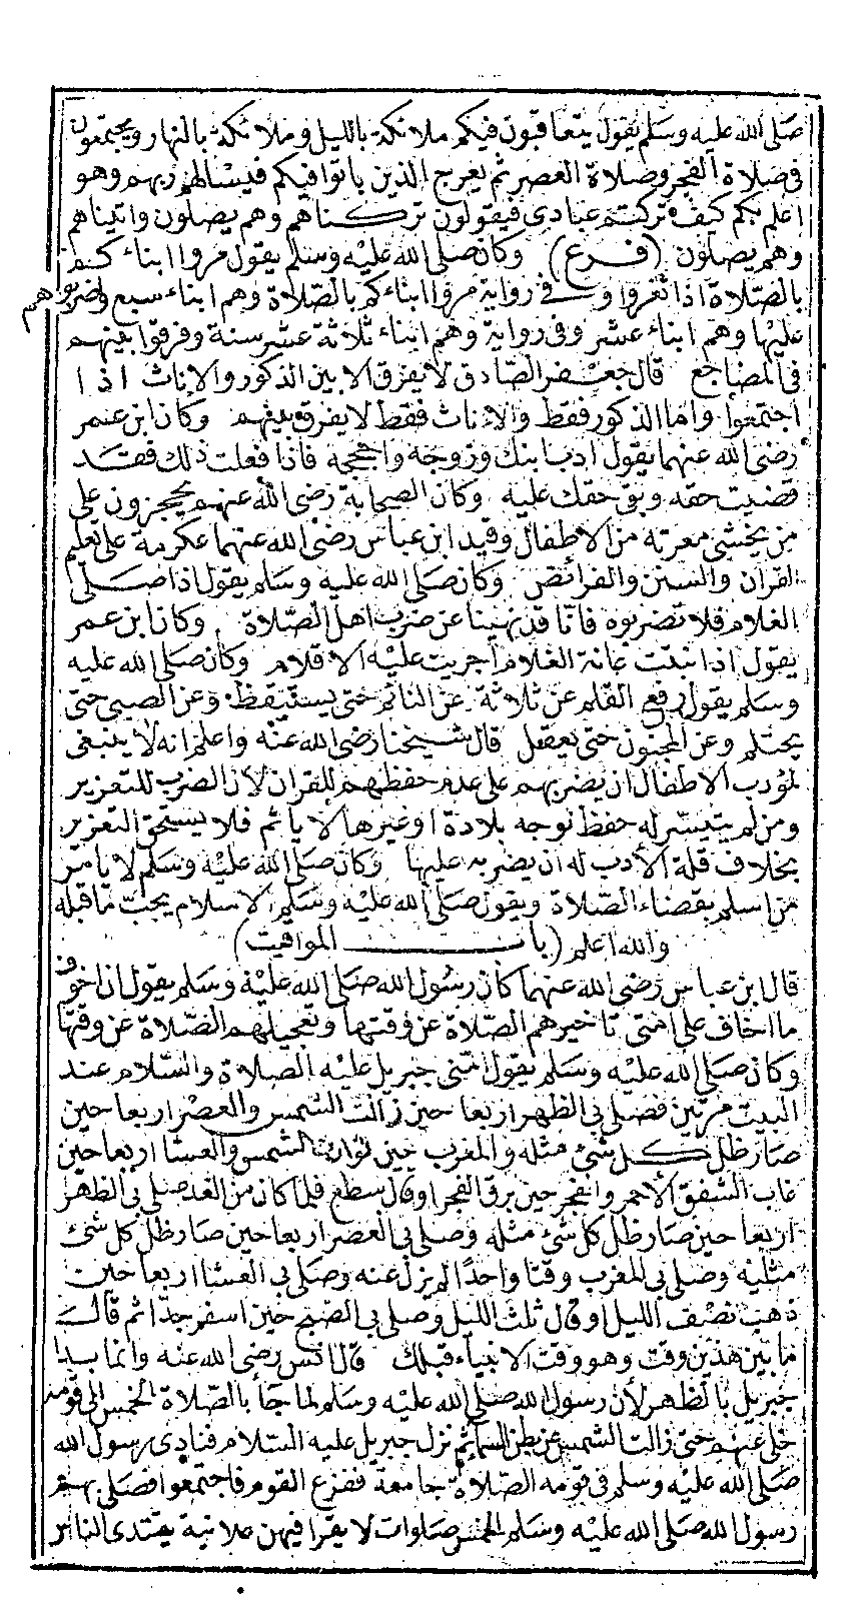 صلى الله عليه وسلم يقول يتعاقبون فيكم ملائكة بالليل وملائكة بالنهار ويجتمعون
فى صلاة الفجر وصلاة العصر ثم يعرج الذين باتوا فيكم فيسالهم ربهم وهو
اعلم بكم كيف تركتم عبادى فيقولون تركناهم وهم يصلون واتيناهم
وهم يصلون (فرع) وكان صلى الله عليه وسلم يقول مروا ابناءكم
بالصلاة اذا ثغروا وفى رواية مروا ابناءكم بالصلاة وهم ابناء سبع واضربوهم
عليها وهم ابناء عشر وفى رواية وهم ابناء ثلاثة عشر سنة وفرقوا بينهم
فى المضاجع قال جعفر الصادق لا يفرق الا بين الذكور والاناث اذا
اجتمعوا واما الذكور فقط والاناث فقط لا يفرق بينهم وكان ابن عمر
رضى الله عنهما يقول ادب ابنك وزوجه واحججه فاذا فعلت ذلك فقد
قضيت حقه وبقى حقك عليه وكان الصحابة رضى الله عنهم يحجزون على
من يخشى معرته من الاطفال وقيد ابن عباس رضى الله عنهما عكرمة على تعلم
القران والسنن والفرائض وكان صلى الله عليه وسلم يقول اذا صلى
الغلام فلا تضربوه فانا قد نهينا عن ضرب اهل الصلاة وكان ابن عمر
يقول اذا نبتت عانة الغلام اجريت عليه الاقلام وكان صلى الله عليه
وسلم يقول رفع القلم عن ثلاثة عن النائم حتى يستيقظ وعن الصبى حتى
يحتلم وعن المجنون حتى يعقل قال شيخنا رضى الله عنه واعلم انه لا ينبغى
لمؤدب الاطفال ان يضربهم على عدم حفظهم للقران لان الضرب للتعزير
ومن لم يتيسر له حفظ لوجه بلادة او غيرها لا ياثم فلا يستحق التعزير
بخلاف قلة الادب له ان يضربه عليها وكان صلى الله عليه وسلم لا يامر
من اسلم بقضاء الصلاة ويقول صلى الله عليه وسلم الاسلام يجب ما قبله
والله اعلم (باب المواقيت)
قال ابن عباس رضى الله عنهما كان رسول الله صلى الله عليه وسلم يقول ان اخوف
ما اخاف على امتى تاخيرهم الصلاة عن وقتها وتعجيلهم الصلاة عن وقتها
وكان صلى الله عليه وسلم يقول امنى جبريل عليه الصلاة والسلام عند
البيت مرتين فصلى بى الظهر اربعا حين زالت الشمس والعصر اربعا حين
صار ظل كل شئ مثله والمغرب حين توارت الشمس والعشا اربعا حين
غاب الشفق الاحمر والفجر حين برق الفجر او قال سطع فلما كان من الغد صلى بى الظهر
اربعا حين صار ظل كل شئ مثله وصلى بى العصر اربعا حين صار ظل كل شئ
مثليه وصلى بى المغرب وقتا واحدًا لم يزل عنه وصلى بى العشا اربعا حين
ذهب نصف الليل او قال ثلث الليل وصلى بى الصبح حين اسفر جدا ثم قال
ما بين هذين وقت وهو وقت الانبياء قبلك قال انس رضى الله عنه وانما بدا
جبريل بالظهر لأن رسول الله صلى الله عليه وسلم لما جأ بالصلاة الخمس الى قومه
خلى عنهم حتى زالت الشمس عن بطن السما ثم نزل جبريل عليه السلام فنادى رسول الله
صلى الله عليه وسلم فى قومه الصلاة جامعة ففزع القوم فاجتمعوا فصلى بهم
رسول الله صلى الله عليه وسلم الخمس صلوات لا يقرا فيهن علانية يقتدى الناس